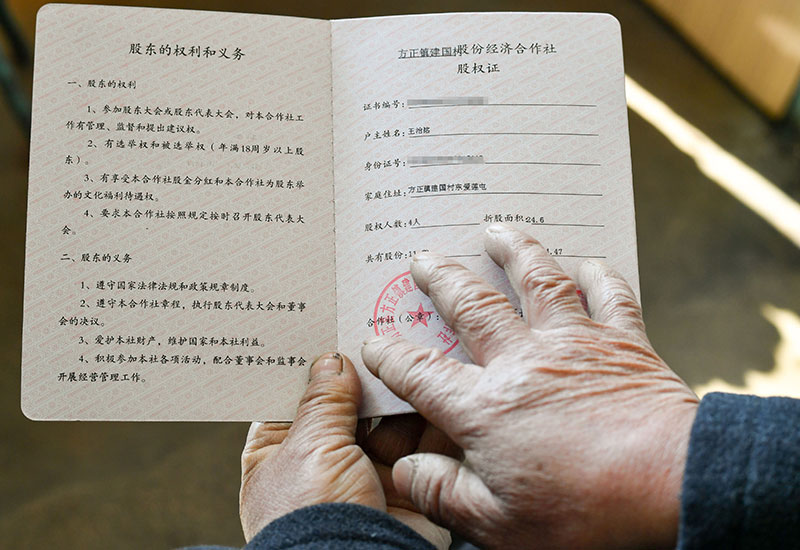 股东的权利和义务
一、股东的权利
1、参加股东大会或股东代表大会，对本合作社工
作有管理、监督和提出建议权。
2、有选举权和被选举权（年满18周岁以上股
东）。
3、有享受本合作社股金分红和本合作社为股东举
办的文化福利待遇权。
4、要求本合作社按照规定按时召开股东代表大
会。
二、股东的义务
1、遵守国家法律法规和政策规章制度。
2、遵守本合作社章程，执行股东代表大会和董事
会的决议。
3、爱护本社财产，维护国家和本社利益。
4、积极参加本社各项活动，配合董事会和监事会
开展经营管理工作。
方正镇建国村股份经济合作社
股权证
证书编号：
户主姓名：王治铭
身份证号：
家庭住址：方正镇建国村东爱莲屯
股权人数：4人 折股面积：24.6
共有股份：
合作社（公章）：